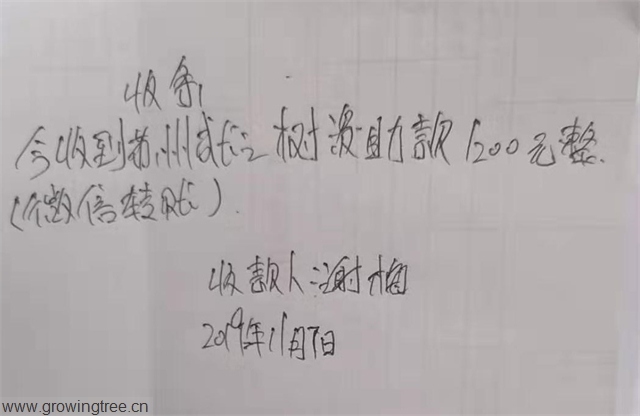 收条
今收到苏州成长之树资助款1200元整.
(微信转账).
收款人:谢梅
2019年11月7日
www.growingtree.cn